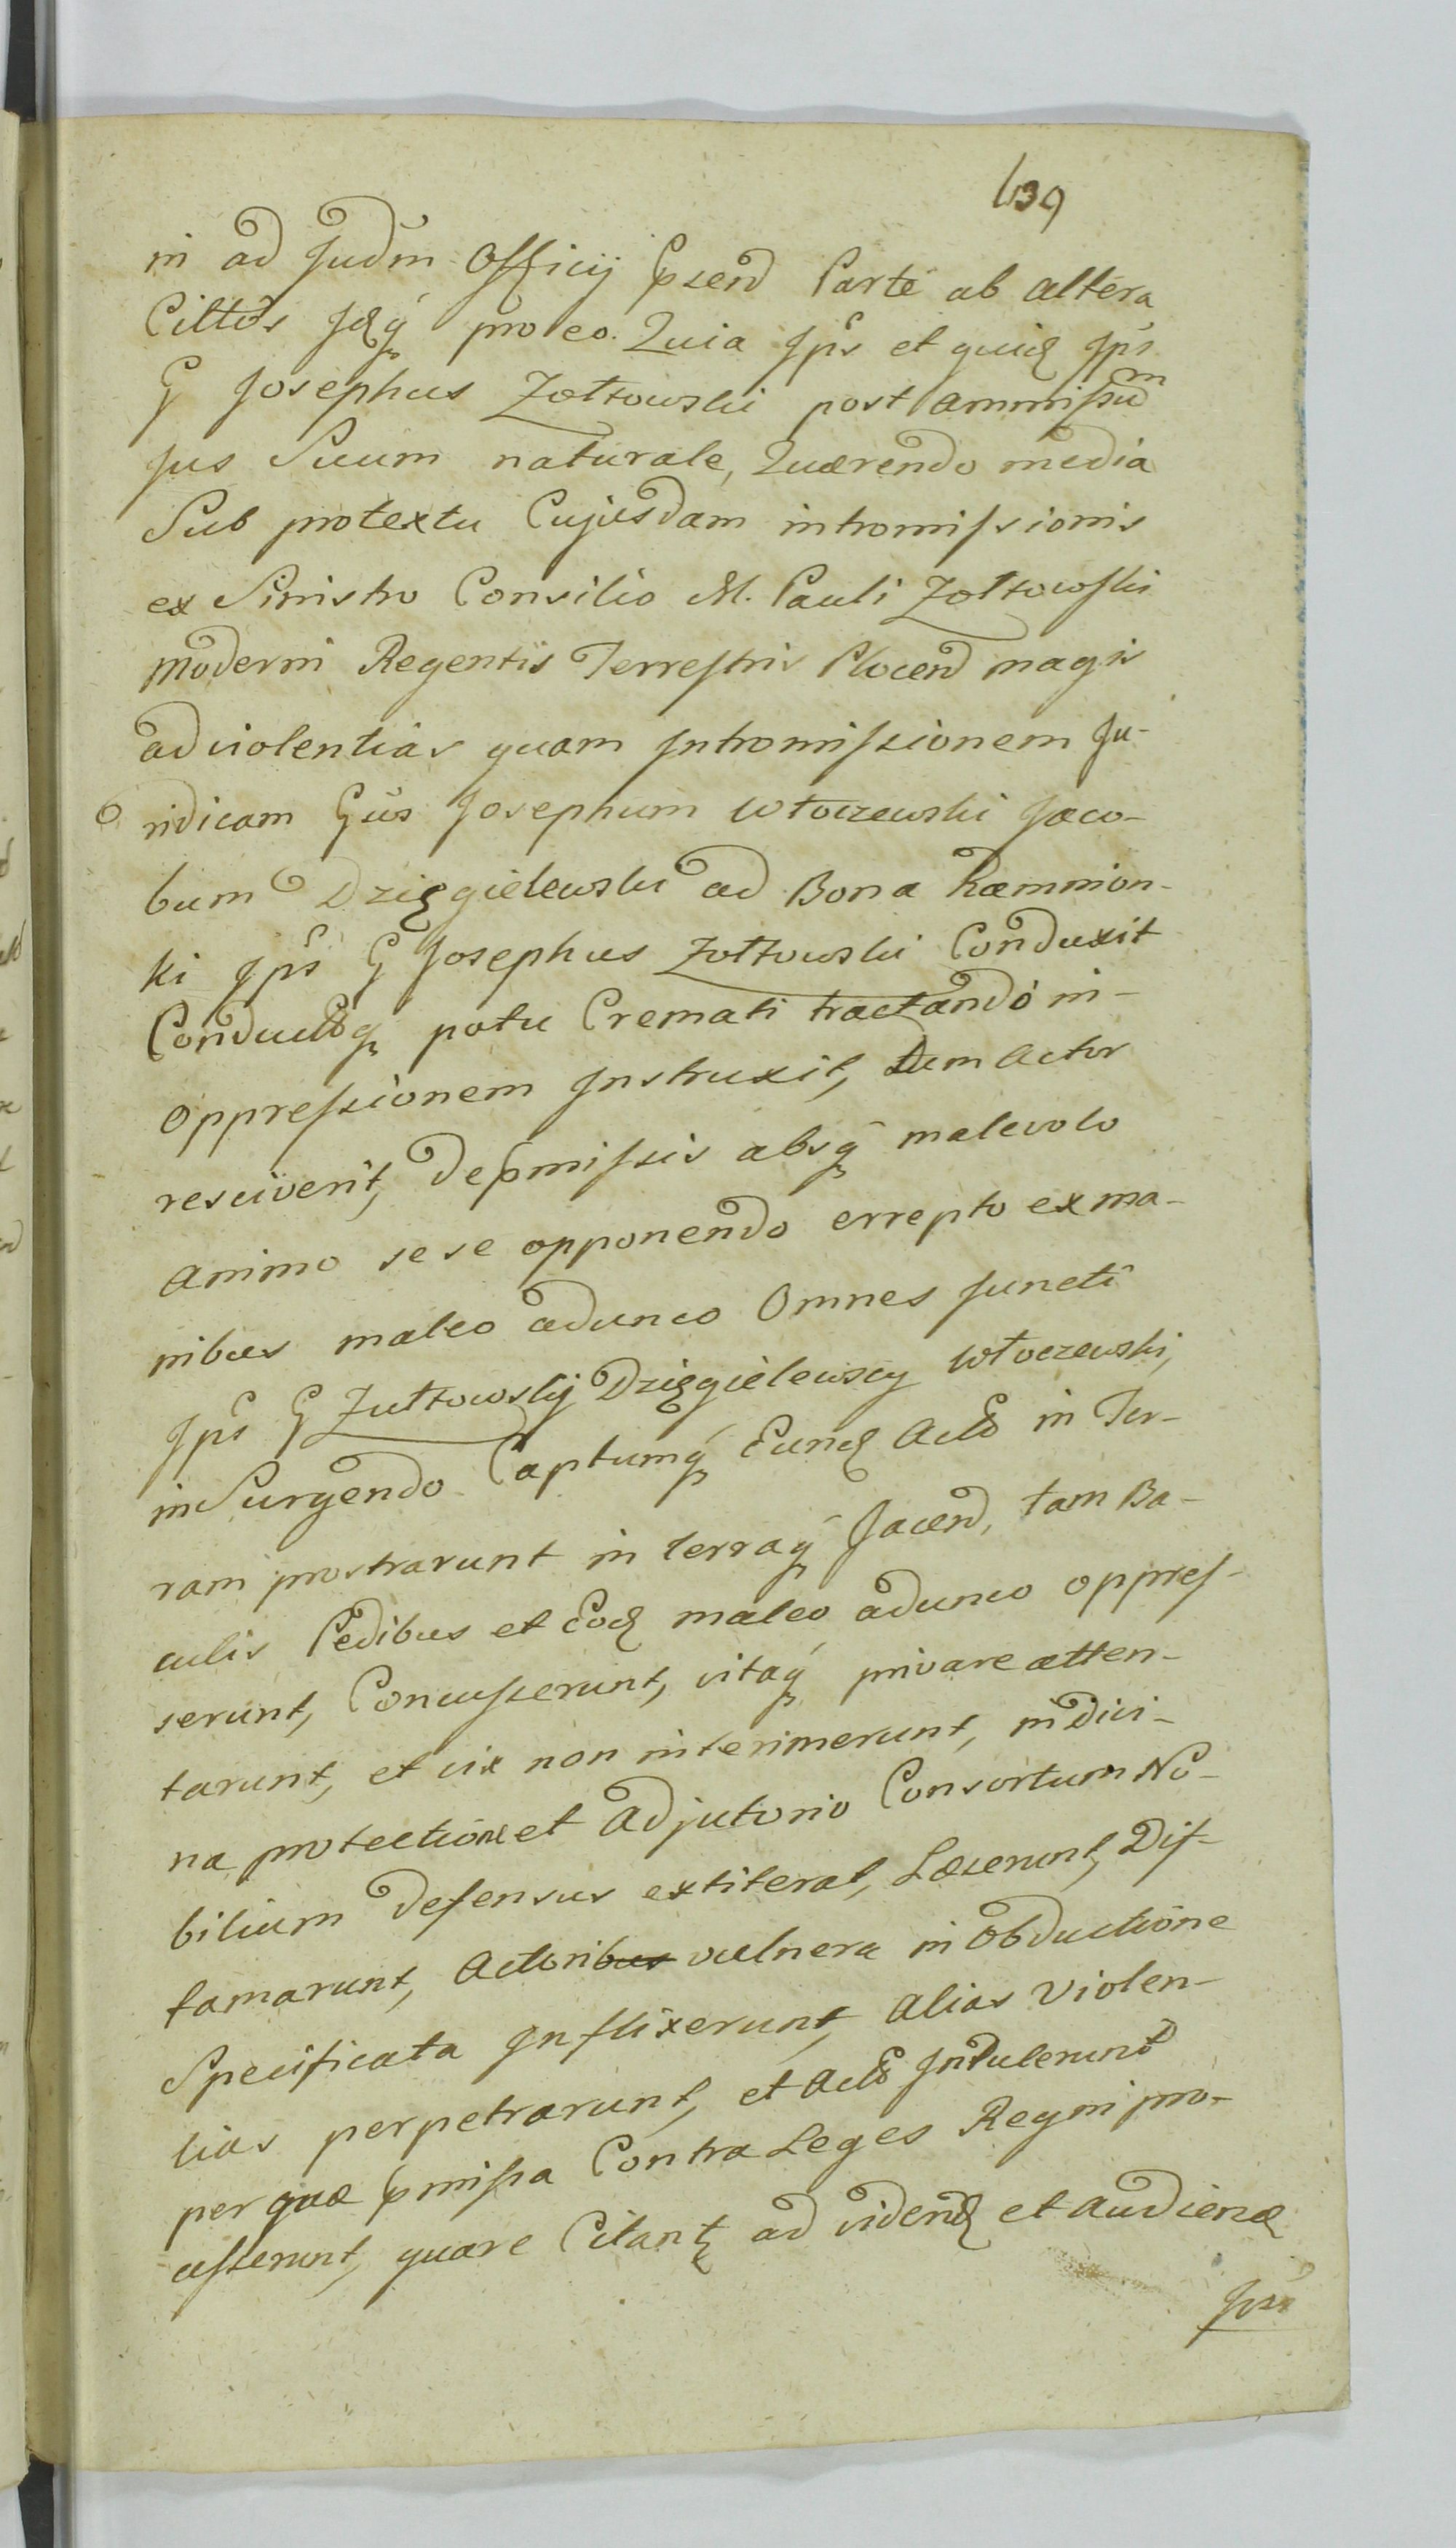 639
in ad Judm Officij Pṕsend Parte ab altera
Cittos Jdq́ pro eo. Quia Jpś et quid Jpś
G Josephus Zołtowski post ammissum
jus Suum naturale, Quærendo media
Sub protextu Cujusdam intromissionis
ex Sinistro Consilio M. Pauli Zołtowski
Moderni Regentis Terrestris Plocend magis
ad violentias quam Intromissionem Ju-
ridicam Gūs Josephum Włoczewski Jaco-
bum Dzięgielewski ad Bona Kæmmion-
ki Jpś G Josephus Zołtowski Conduxit
Conductosq́ potu Cremati tractando in
oppressionem Instruxit, Dum Actor
resciverit, de pmissis absq́ malevolo
animo se se opponendo errepto ex ma-
nibus maleo adunco Omnes Juncti
Jpś G Zułtowsky Dzięgielewscy Włoczewski,
in Surgendo Captumq́ Eund Acto in Ter-
ram prostrarunt in terraq́ Jacend, tam Ba-
culis Pedibus et Eod maleo adunco oppres-
serunt, Concusserunt, vitaq́ privare atten-
tarunt, et vix non interimerunt, ni divi-
na protectione et Adjutorio Consortum No-
bilium defensus extiterat, Læserunt, Dif-
famarunt, Actoribus vulnera in Obductione
Specificata Inflixerunt, alias Violen-
tias perpetrarunt, et Acto Intulerunt
per quæ pmissa Contra Leges Regni pro-
cesserunt, quare Citant ad videnđ et audiend
Jpś